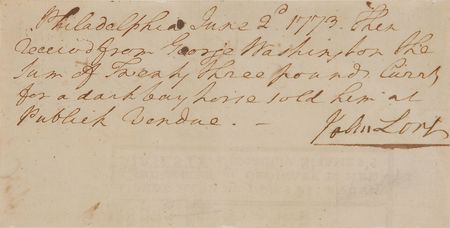 Philadelphia June 2d 1773. Then
received from George Washington the
Sum of Twenty Three pounds Curnt
for a dark bay horse sold him at
Publick Vendue. —
John Lort